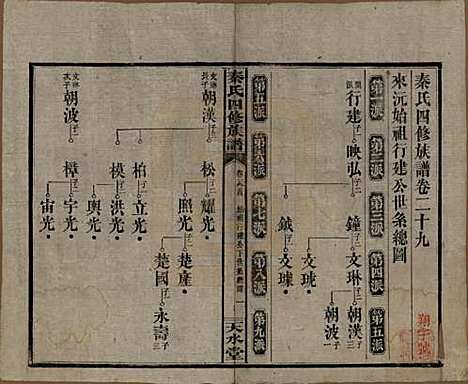 秦氏四修族譜卷二十九
來沅始祖行建公世系總圖
第二派
第三派
第四派
第五派
行建
映弘
鐘
文琳
朝漢
朝波
文珖
鉞
文璩
秦氏四修族譜
天水堂
第五派
第六派
第七派
第八派
第九派
文琳長子
朝漢
松
耀光
照光
楚產
楚國
永壽
柏
立光
模
洪光
輿光
文琳次子
朝波
樟
宇光
宙光